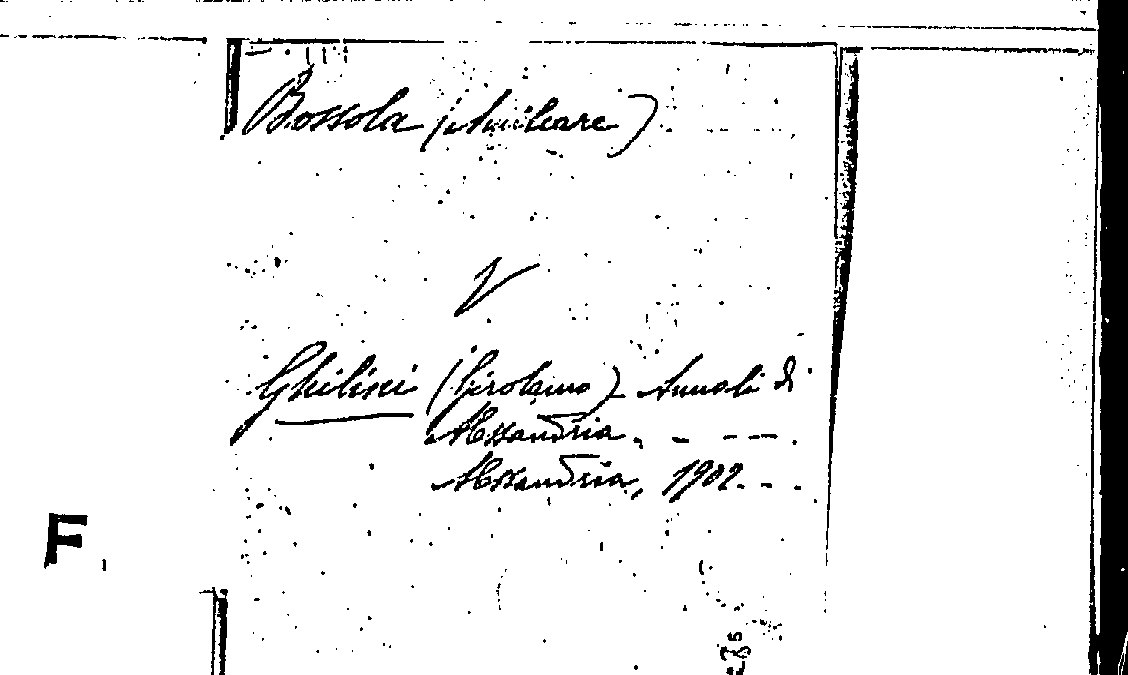 Bossola (Amilcare)
V
Ghilini (Girolamo) Annali di
Alessandria. - - - -.
Alessandria, 1902. - - .
F.